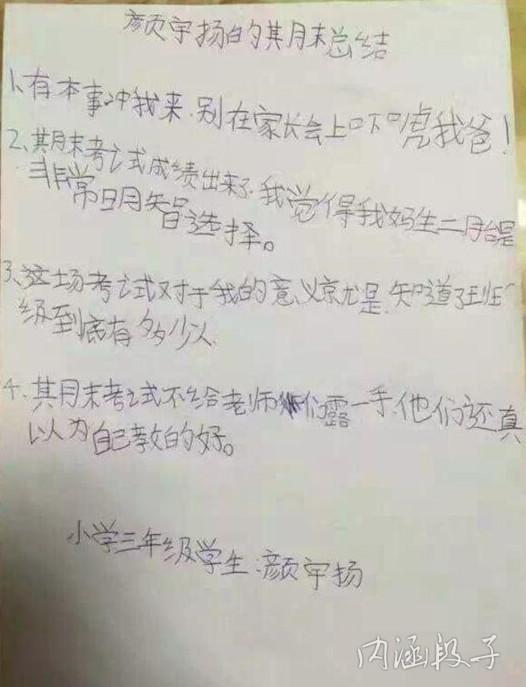 颜宇扬的期末总结
1、有本事冲我来,别在家长会上吓唬我爸！
2、期末考试成绩出来了,我觉得我妈生二胎是
非常明智选择。
3、这场考试对于我的意义就是,知道了班
级到底有多少人
4、期末考试不给老师们露一手,他们还真
以为自己教的好。
小学三年级学生:颜宇扬
内涵段子